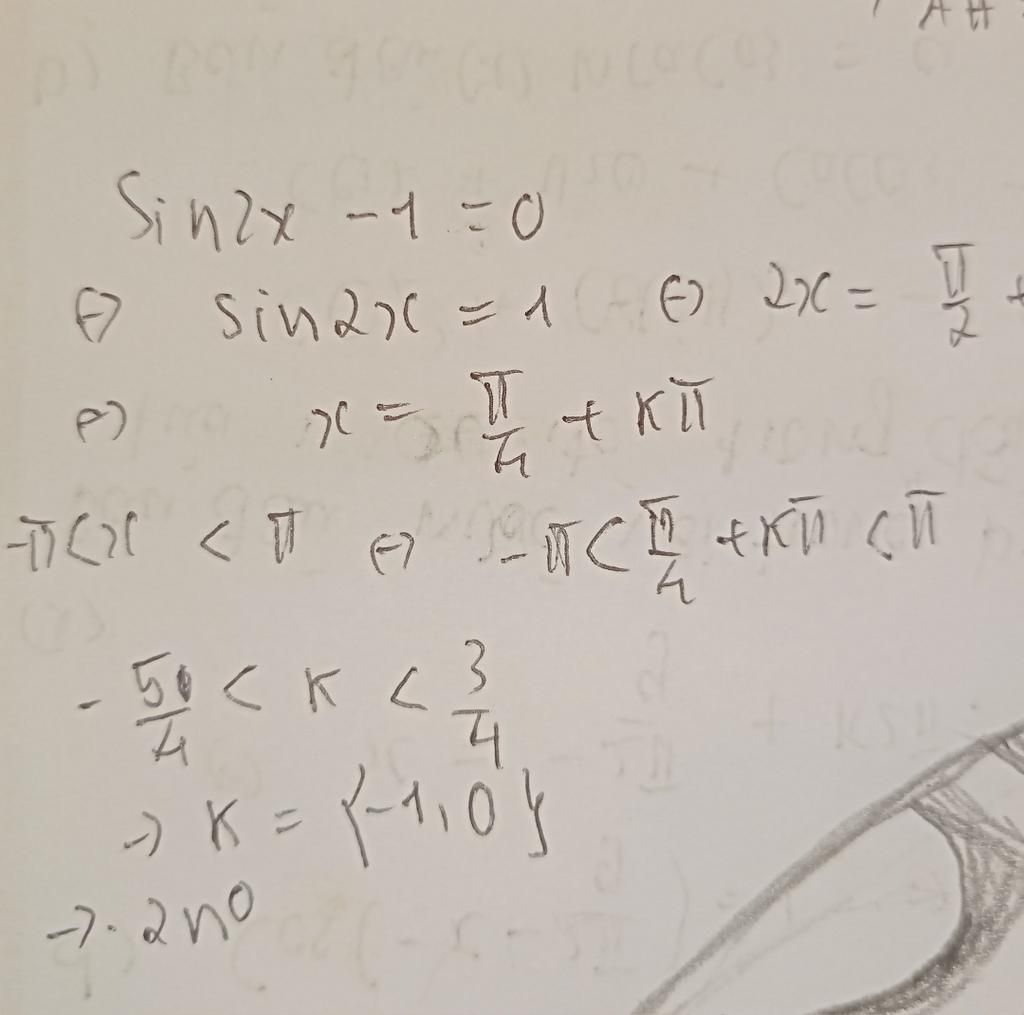 AH
Sin2x - 1 = 0
⇔ sin2x = 1 ⇔ 2x = π/2 +
⇔ x = π/4 + kπ
-π < x < π ⇔ -π < π/4 + kπ < π
- 5/4 < k < 3/4
→ k = {-1, 0}
→ 2n0